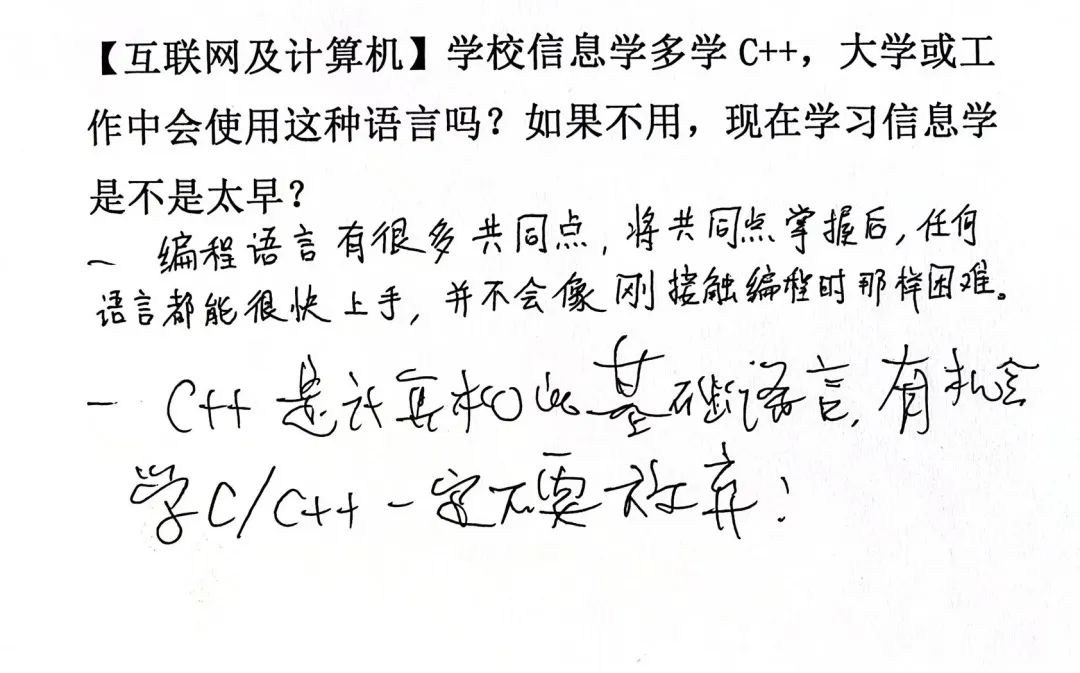 【互联网及计算机】学校信息学多学 C++，大学或工
作中会使用这种语言吗？如果不用，现在学习信息学
是不是太早？
— 编程语言有很多共同点，将共同点掌握后，任何
语言都能很快上手，并不会像刚接触编程时那样困难。
— C++ 是计算机的基础语言，有机会
学C/C++ 一定不要放弃！